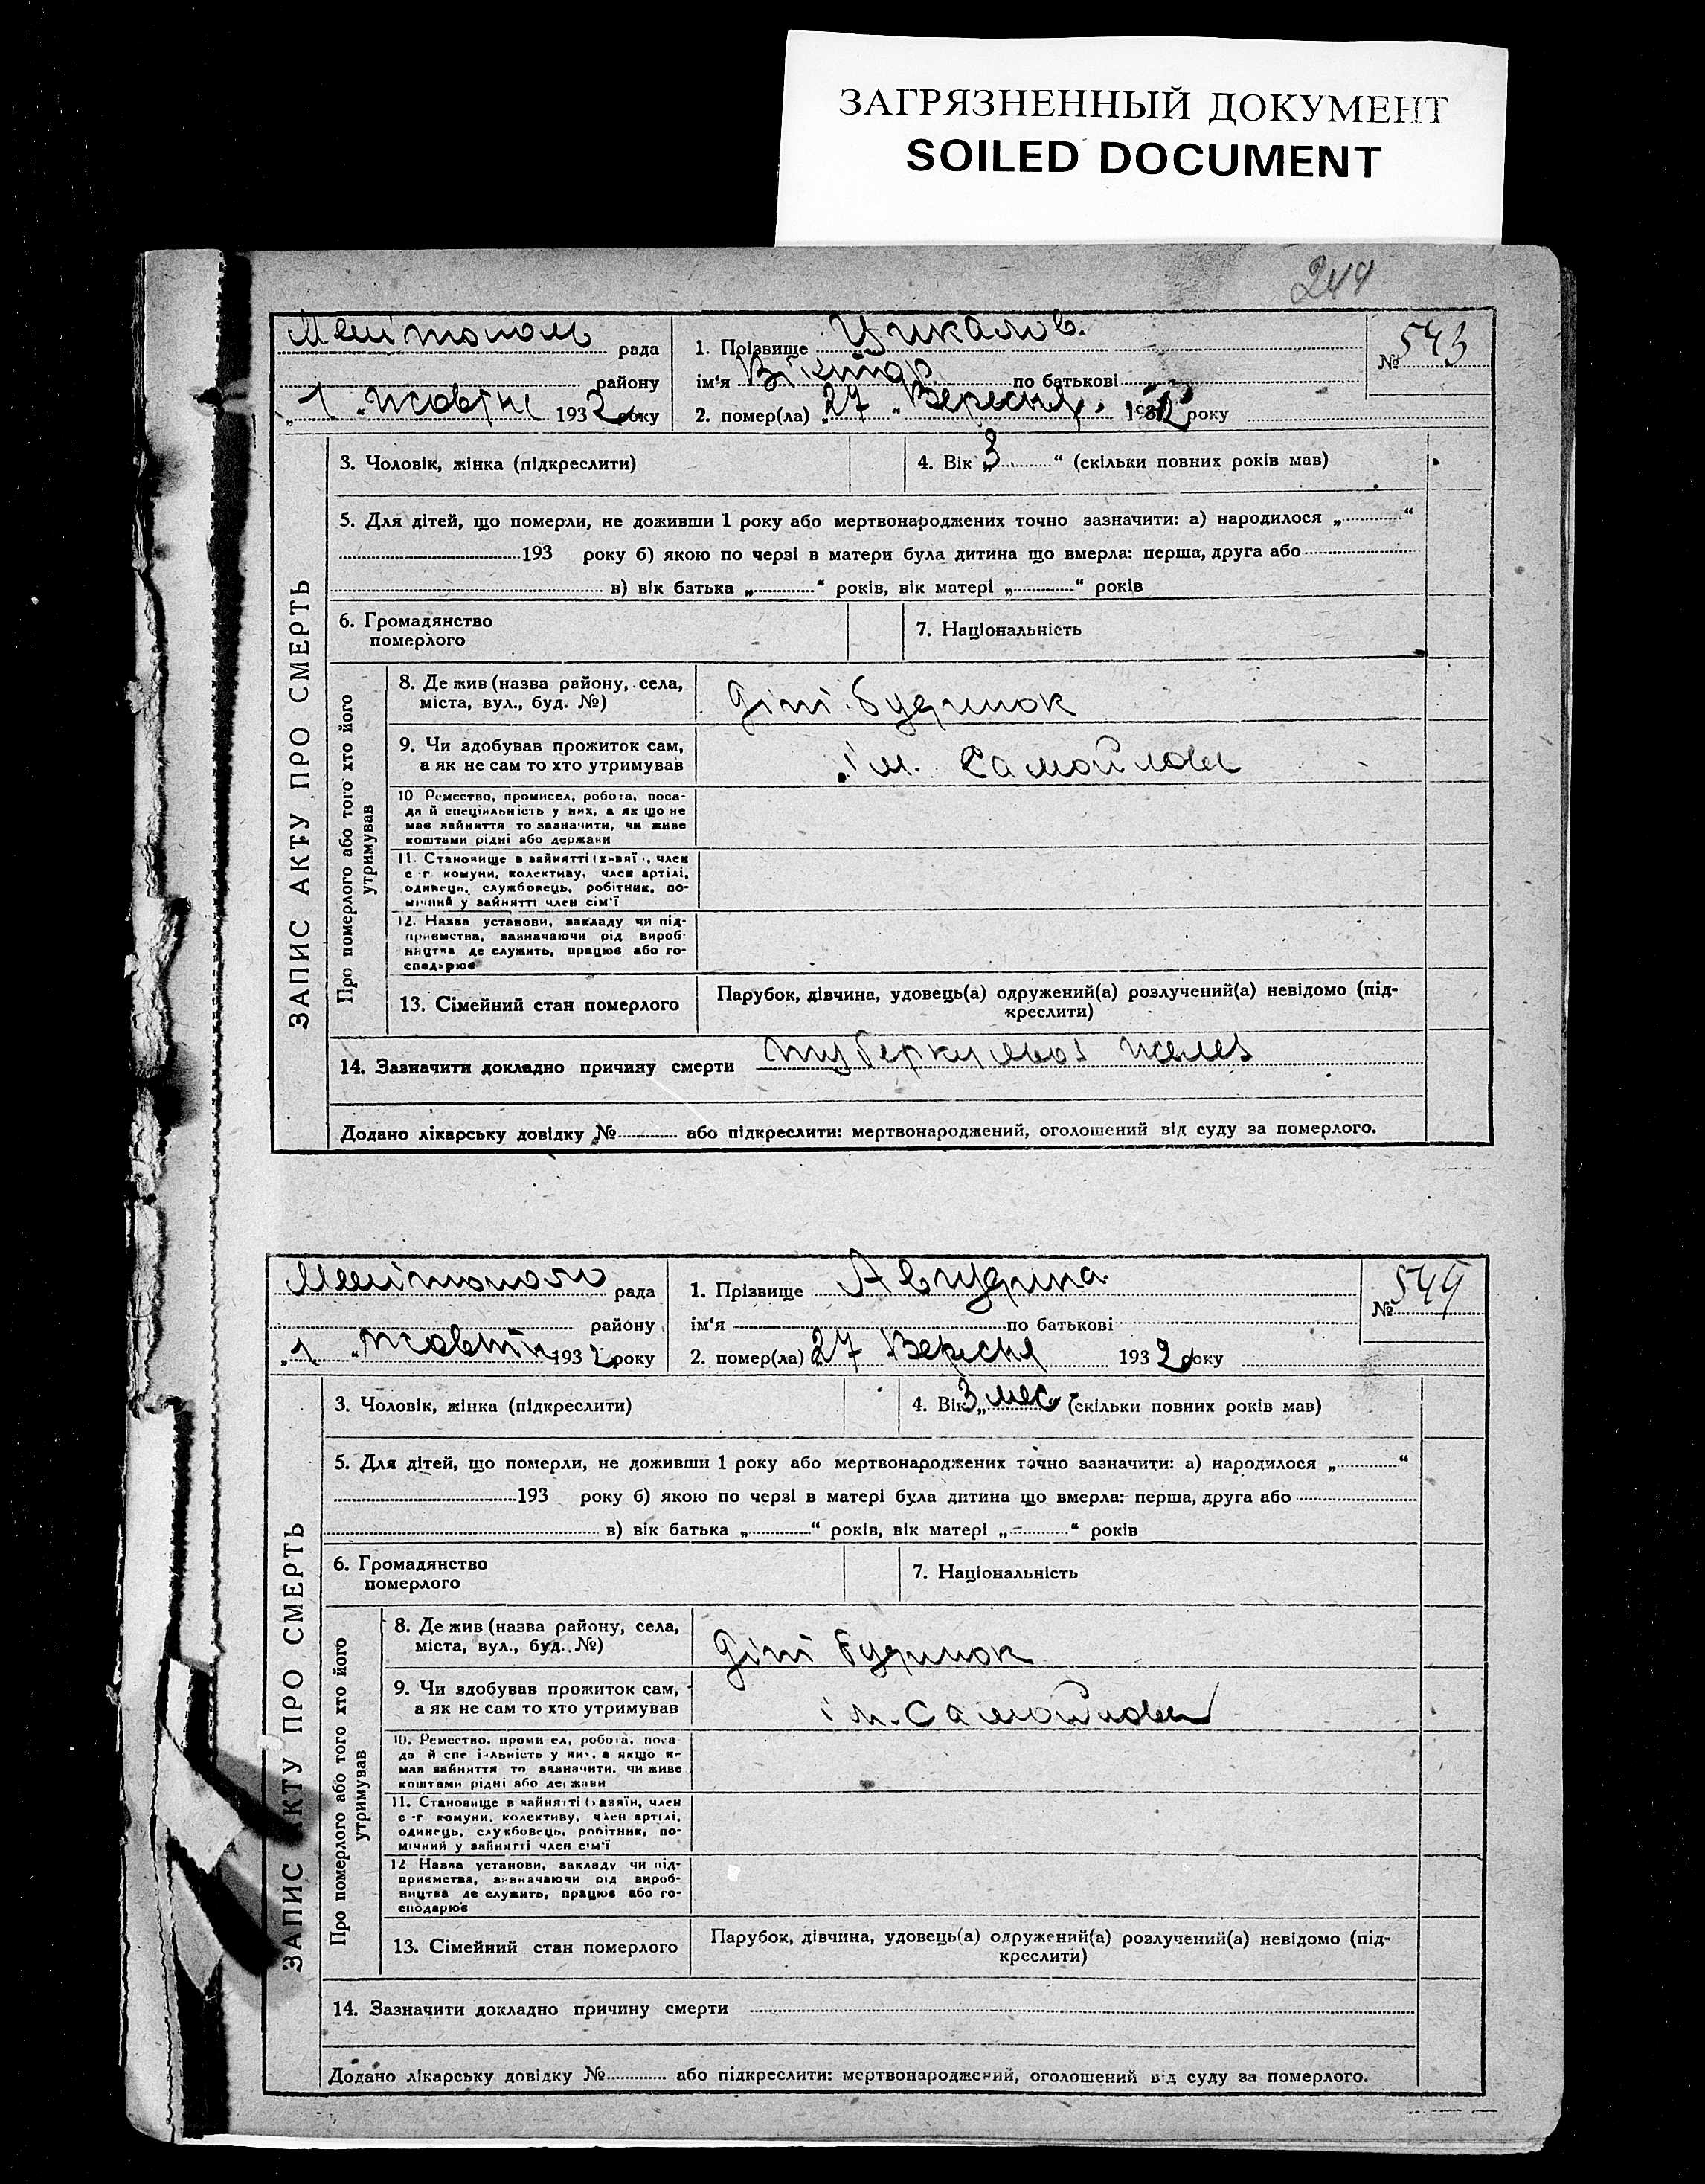 ЗАГРЯЗНЕННЫЙ ДОКУМЕНТ
SOILED DOCUMENT
244
Мелітополь рада
1. Прізвище Цикалов.
№ 543
району
ім'я Віктор по батькові
„1" Жовтні 1932 року
2. помер(ла) „27" Вересня 1932 року
ЗАПИС АКТУ ПРО СМЕРТЬ
3. Чоловік, жінка (підкреслити)
4. Вік „3" (скільки повних років мав)
5. Для дітей, що померли, не доживши 1 року або мертвонароджених точно зазначити: а) народилося „ "
193 року б) якою по черзі в матери була дитина що вмерла: перша, друга або
в) вік батька „ " років, вік матері „ " років
6. Громадянство
померлого
7. Національність
Про померлого або того хто його
утримував
8. Де жив (назва району, села,
міста, вул., буд. №)
Діт. будинок
9. Чи здобував прожиток сам,
а як не сам то хто утримував
ім. Самойлова
10 Ремество, промисел, робота, поса-
да й спеціяльність у них, а як що не
має зайняття то зазначити, чи живе
коштами рідні або держави
11. Становище в зайнятті (хазяї, член
с-г комуни, колективу, член артілі,
одинець, службовець, робітник, по-
мічний у зайнятті член сім'ї
12. Назва установи, закладу чи під-
приємства, зазначаючи рід вироб-
ництва де служить, працює або го-
сподарює
13. Сімейний стан померлого
Парубок, дівчина, удовець(а) одружений(а) розлучений(а) невідомо (під-
креслити)
14. Зазначити докладно причину смерти туберкульоз желез
Додано лікарську довідку № або підкреслити: мертвонароджений, оголошений від суду за померлого.
Мелітополь рада
1. Прізвище
№ 544
району
ім'я по батькові
„1" Жовтні 1932 року
2. помер(ла) 27 Вересня 1932 року
ЗАПИС АКТУ ПРО СМЕРТЬ
3. Чоловік, жінка (підкреслити)
4. Вік „3 мес" (скільки повних років мав)
5. Для дітей, що померли, не доживши 1 року або мертвонароджених точно зазначити: а) народилося „ "
193 року б) якою по черзі в матері була дитина що вмерла: перша, друга або
в) вік батька „ " років, вік матері „ " років
6. Громадянство
померлого
7. Національність
Про померлого або того хто його
утримував
8. Де жив (назва району, села,
міста, вул., буд. №)
Діт будинок
9. Чи здобував прожиток сам,
а як не сам то хто утримував
ім. Самойлова
10. Ремество, промисел, робота, поса
да й спеціяльність у них, а якщо не
має зайняття то зазначити, чи живе
коштами рідні або держави
11. Становище в зайнятті (хазяїн, член
с-г комуни, колективу, член артілі,
одинець, службовець, робітник, по-
мічний у зайнятті член сім'ї
12 Назва установи, закладу чи під-
приємства, зазначаючи рід вироб-
ництва де служить, працює або го-
сподарює
13. Сімейний стан померлого
Парубок, дівчина, удовець(а) одружений(а) розлучений(а) невідомо (під-
креслити)
14. Зазначити докладно причину смерти
Додано лікарську довідку № або підкреслити: мертвонароджений, оголошений від суду за померлого.